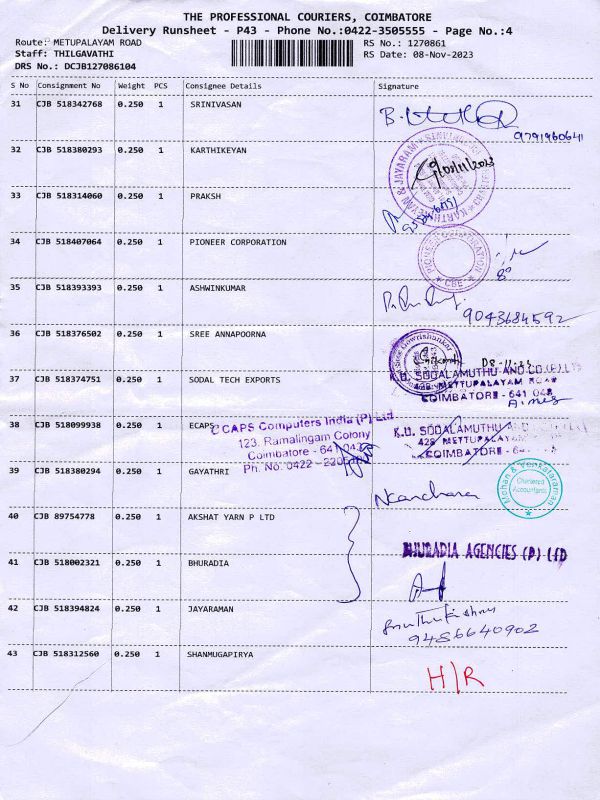 THE PROFESSIONAL COURIERS, COIMBATORE
Delivery Runsheet - P43 - Phone No.:0422-3505555 - Page No.:4
Route: METUPALAYAM ROAD RS No.: 1270861
Staff: THILGAVATHI RS Date: 08-Nov-2023
DRS No.: DCJB127086104
S No Consignment No Weight PCS Consignee Details Signature
31 CJB 518342768 0.250 1 SRINIVASAN
9791960641
32 CJB 518380293 0.250 1 KARTHIKEYAN
KARTHIKEYAN & JAYARAM
33 CJB 518314060 0.250 1 PRAKSH
34 CJB 518407064 0.250 1 PIONEER CORPORATION
PIONEER CORPORATION
CBE
35 CJB 518393393 0.250 1 ASHWINKUMAR
9043684592
36 CJB 518376502 0.250 1 SREE ANNAPOORNA
Sree Gowrishankar
37 CJB 518374751 0.250 1 SODAL TECH EXPORTS
K.U. SODALAMUTHU AND CO.(P) LTD
428 METTUPALAYAM ROAD
COIMBATORE - 641 043
38 CJB 518099938 0.250 1 ECAPS
ECAPS Computers India (P) Ltd
123, Ramalingam Colony
Coimbatore - 641 043
Ph. No: 0422 -
K.U. SODALAMUTHU AND
428 METTUPALAYAM
COIMBATORE - 641
39 CJB 518380294 0.250 1 GAYATHRI
Mohan & Venkataraman
Chartered
Accountants
40 CJB 89754778 0.250 1 AKSHAT YARN P LTD
BHURADIA AGENCIES (P) LTD
41 CJB 518002321 0.250 1 BHURADIA
42 CJB 518394824 0.250 1 JAYARAMAN
9486640902
43 CJB 518312560 0.250 1 SHANMUGAPIRYA
H/R